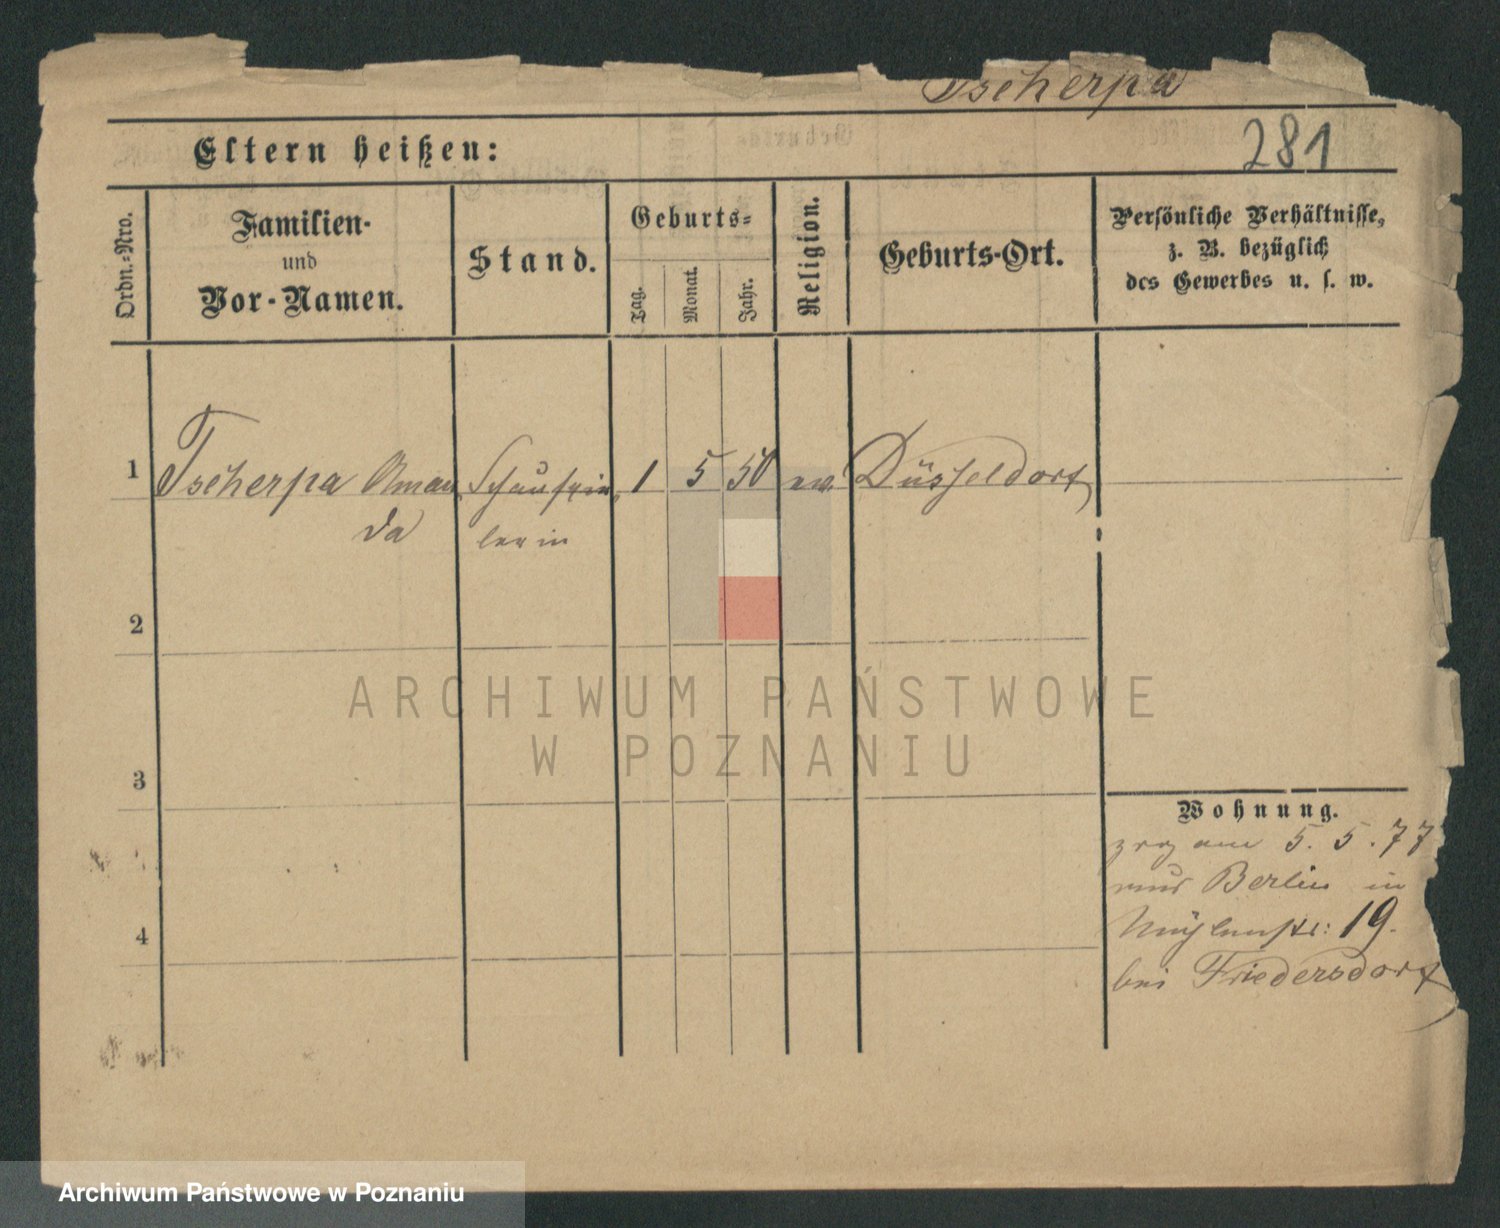 Tscherpa
281
Eltern heißen:
Ordn.-Nro.
Familien-
und
Vor-Namen.
Stand.
Geburts-
Tag.
Monat.
Jahr.
Religion.
Geburts-Ort.
Persönliche Verhältnisse,
z. B. bezüglich
des Gewerbes u. s. w.
1 Tscherpa Aman Schauspie 1 5 50 ev. Düsseldorf
da lerin
2
ARCHIWUM PAŃSTWOWE
W POZNANIU
3
Wohnung.
zog am 5. 5. 77
aus Berlin in
Mühlenstr: 19.
bei Friedersdorf
4
Archiwum Państwowe w Poznaniu